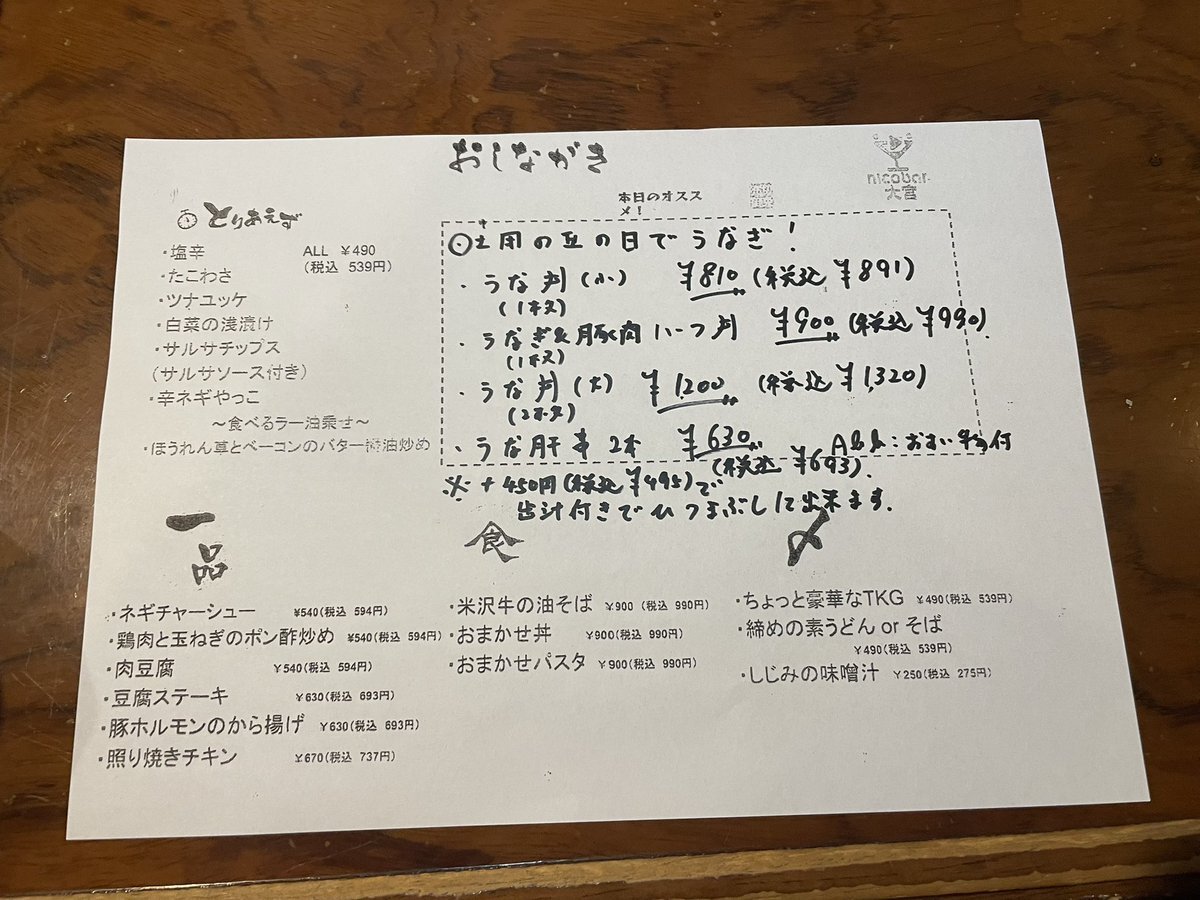 おしながき
nicobar
大宮
とりあえず
・塩辛 ALL ￥490
(税込 539円)
・たこわさ
・ツナユッケ
・白菜の浅漬け
・サルサチップス
(サルサソース付き)
・辛ネギやっこ
～食べるラー油乗せ～
・ほうれん草とベーコンのバター醤油炒め
本日のオスス
メ!
土用の丑の日でうなぎ!
・うな丼(小) ¥810 (税込 ¥891)
(1キス)
・うなぎ&豚肉ハーフ丼 ¥900 (税込 ¥990)
(1キス)
・うな丼(大) ¥1,200 (税込 ¥1,320)
(2キス)
・うな肝串 2本 ¥630
(税込 ¥693)
付
※ +450円(税込 ¥495)で
出汁付きでひつまぶしに出来ます.
一品
・ネギチャーシュー ¥540(税込 594円)
・鶏肉と玉ねぎのポン酢炒め ¥540(税込 594円)
・肉豆腐 ￥540(税込 594円)
・豆腐ステーキ ￥630(税込 693円)
・豚ホルモンのから揚げ ￥630(税込 693円)
・照り焼きチキン ￥670(税込 737円)
食
・米沢牛の油そば ￥900 (税込 990円)
・おまかせ丼 ￥900(税込 990円)
・おまかせパスタ ￥900(税込 990円)
〆
・ちょっと豪華なTKG ￥490(税込 539円)
・締めの素うどん or そば
￥490(税込 539円)
・しじみの味噌汁 ￥250(税込 275円)